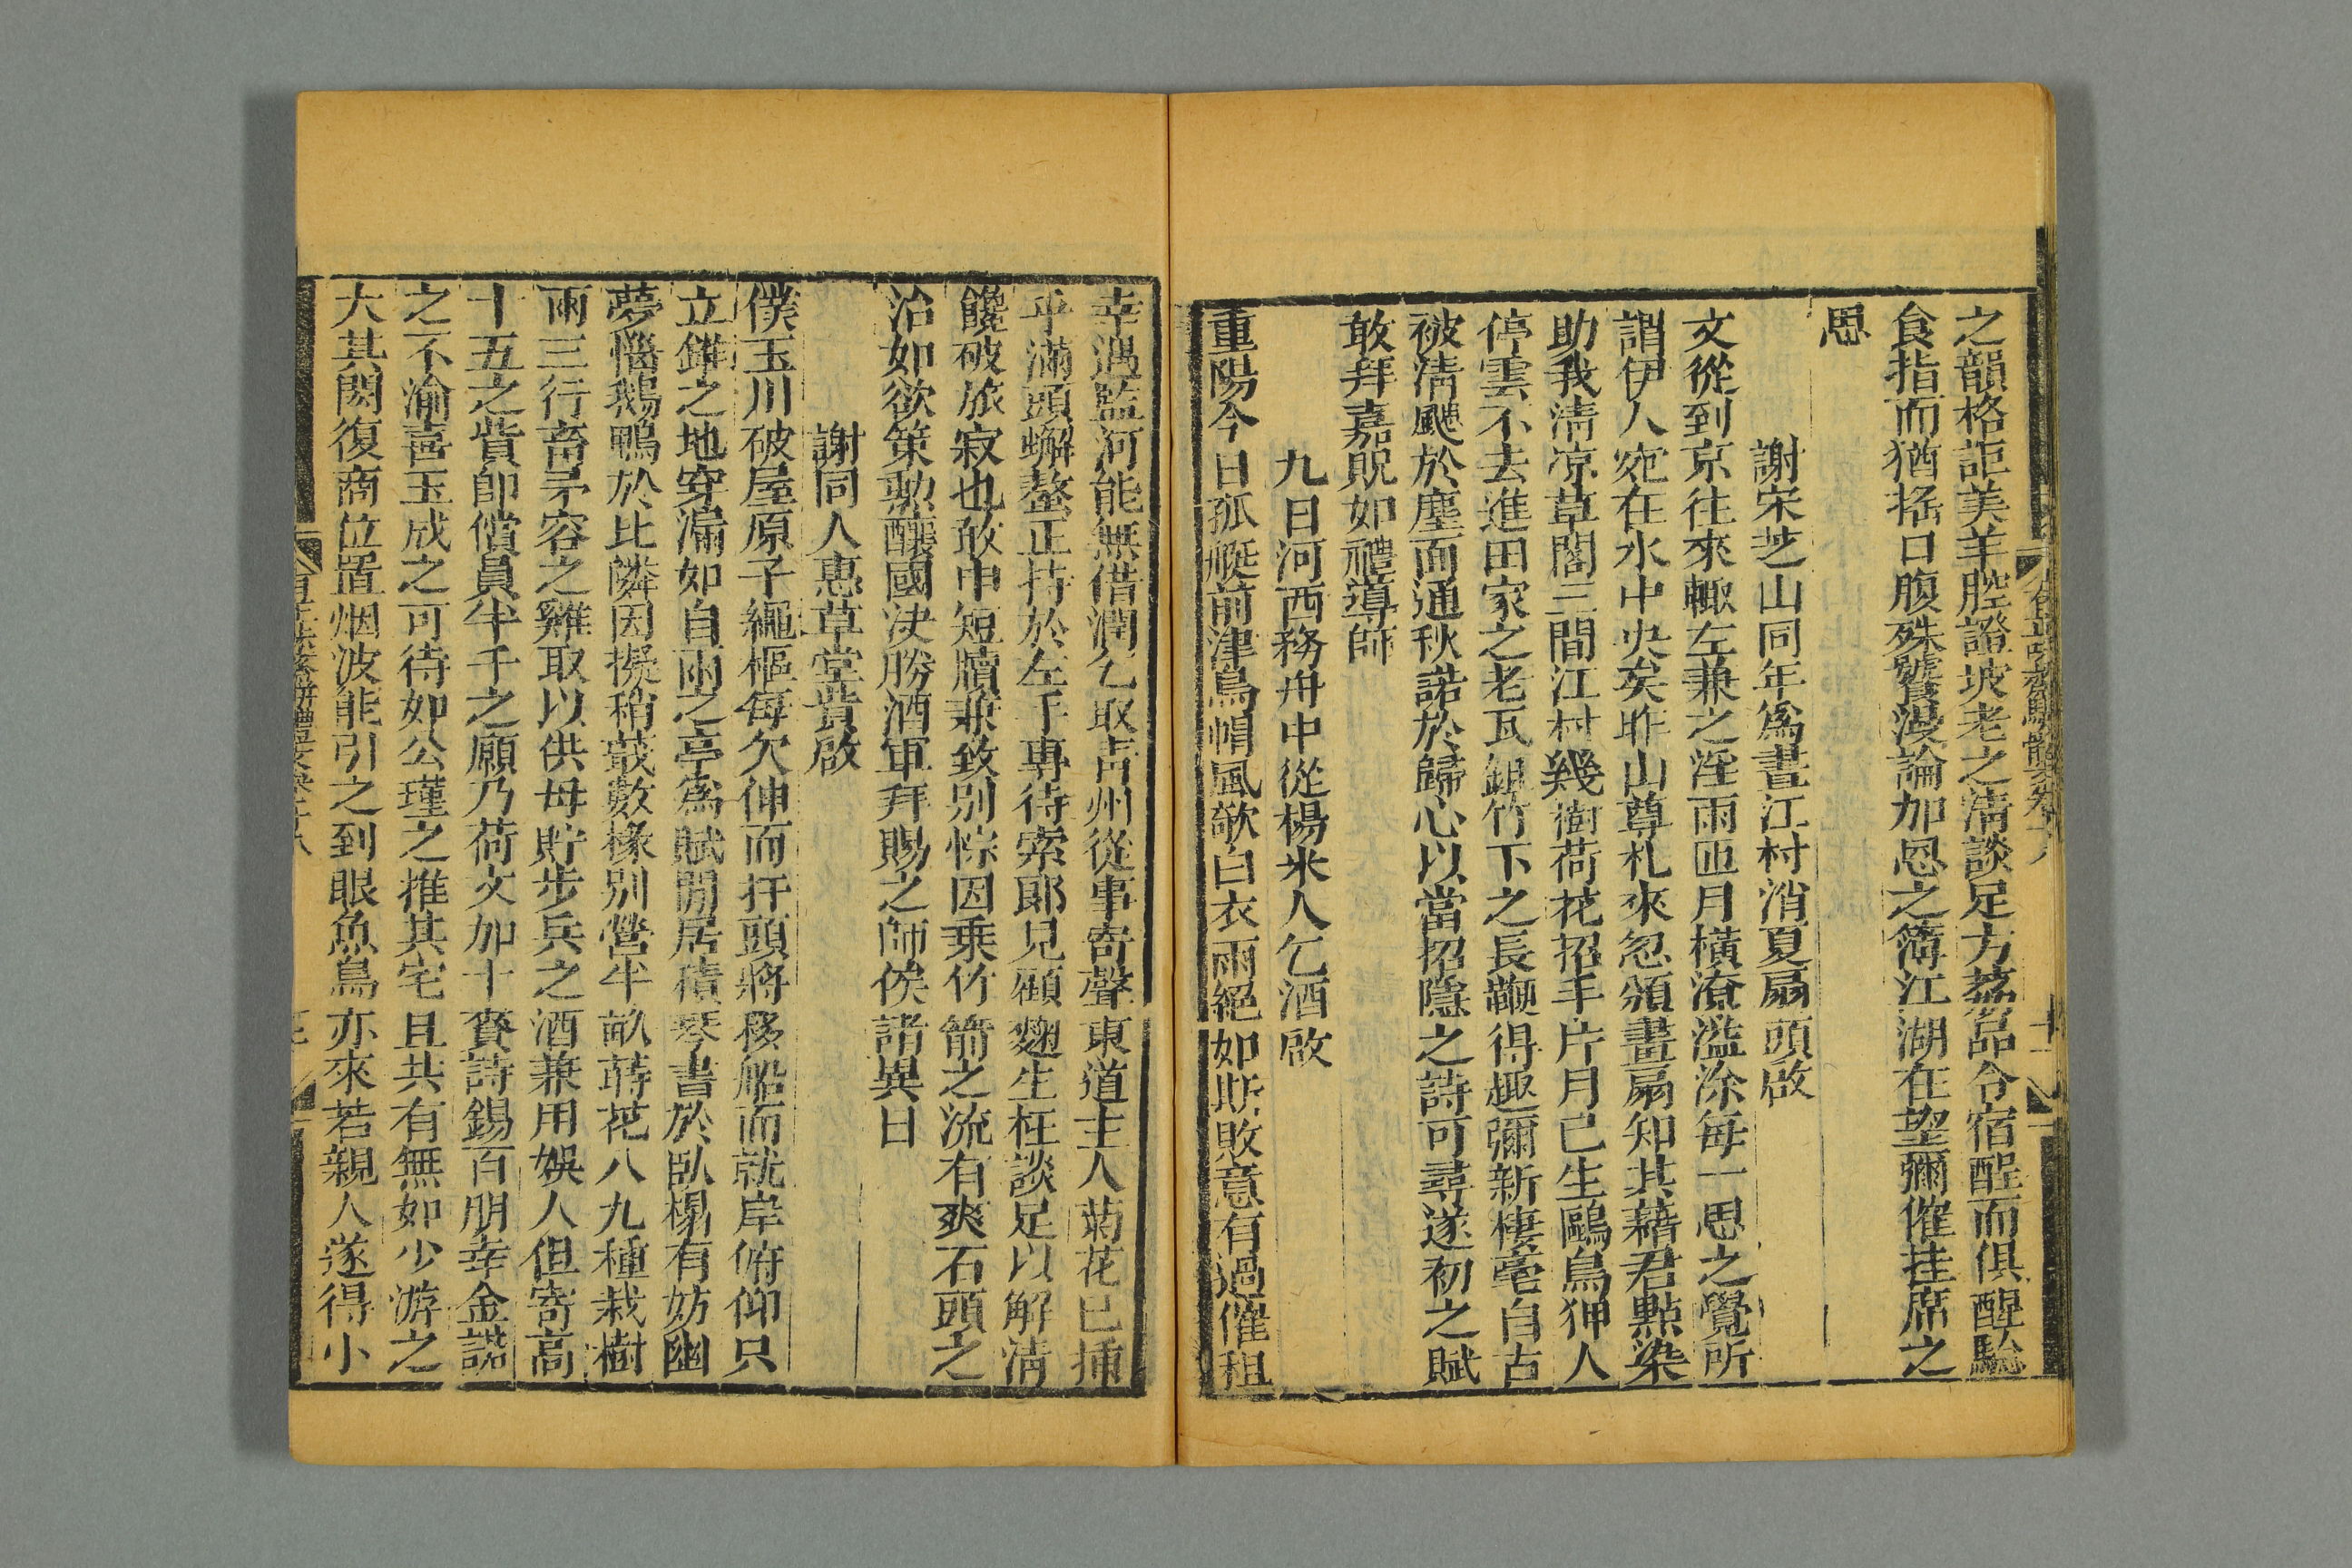 之韻格詎美羊腔證坡老之清談足方荔品令宿酲而俱醒驗
食指而猶搖口腹殊號饕漫論加恩之簿江湖在望彌催挂席之
思
謝宋芝山同年爲畫江村消夏扇頭啟
文從到京往來輙左兼之淫雨匝月橫潦溢涂每一思之覺所
謂伊人宛在水中央矣昨山尊札來忽頒畫扇知其藉君點染
助我清凉草閣三間江村幾樹荷花招手片月已生鷗鳥狎人
停雲不去進田家之老瓦鉏竹下之長鞭得趣彌新棲毫自古
被清飇於塵面通秋諾於歸心以當招隱之詩可尋遂初之賦
敢拜嘉貺如禮導師
九日河西務舟中從楊米人乞酒啟
重陽今日孤艇前津烏帽風欹白衣雨絕如斯敗意有過催租
幸遇監河能無借潤乞取青州從事寄聲東道主人菊花已插
乎滿頭蠏螯正持於左手專待索郎見顧麴生枉談足以解清
饞破旅寂也敢申短牘兼致别悰因乗竹箭之流有爽石頭之
治如欲策勲釀國决勝酒軍拜賜之師俟諸異日
謝同人惠草堂貲啟
僕玉川破屋原子繩樞每欠伸而扞頭將移船而就岸俯仰只
立錐之地穿漏如自雨之亭爲賦閒居積琴書於臥榻有妨幽
夢惱鵝鴨於比隣因擬稍葺數椽别營半畝蒔花八九種栽樹
兩三行畜茅容之雞取以供母貯步兵之酒兼用娛人但寄高
十五之貲卽償員半千之願乃荷文加十賚詩錫百朋幸金諾
之不渝喜玉成之可待如公瑾之推其宅且共有無如少游之
大其閎復商位置烟波能引之到眼魚鳥亦來若親人遂得小